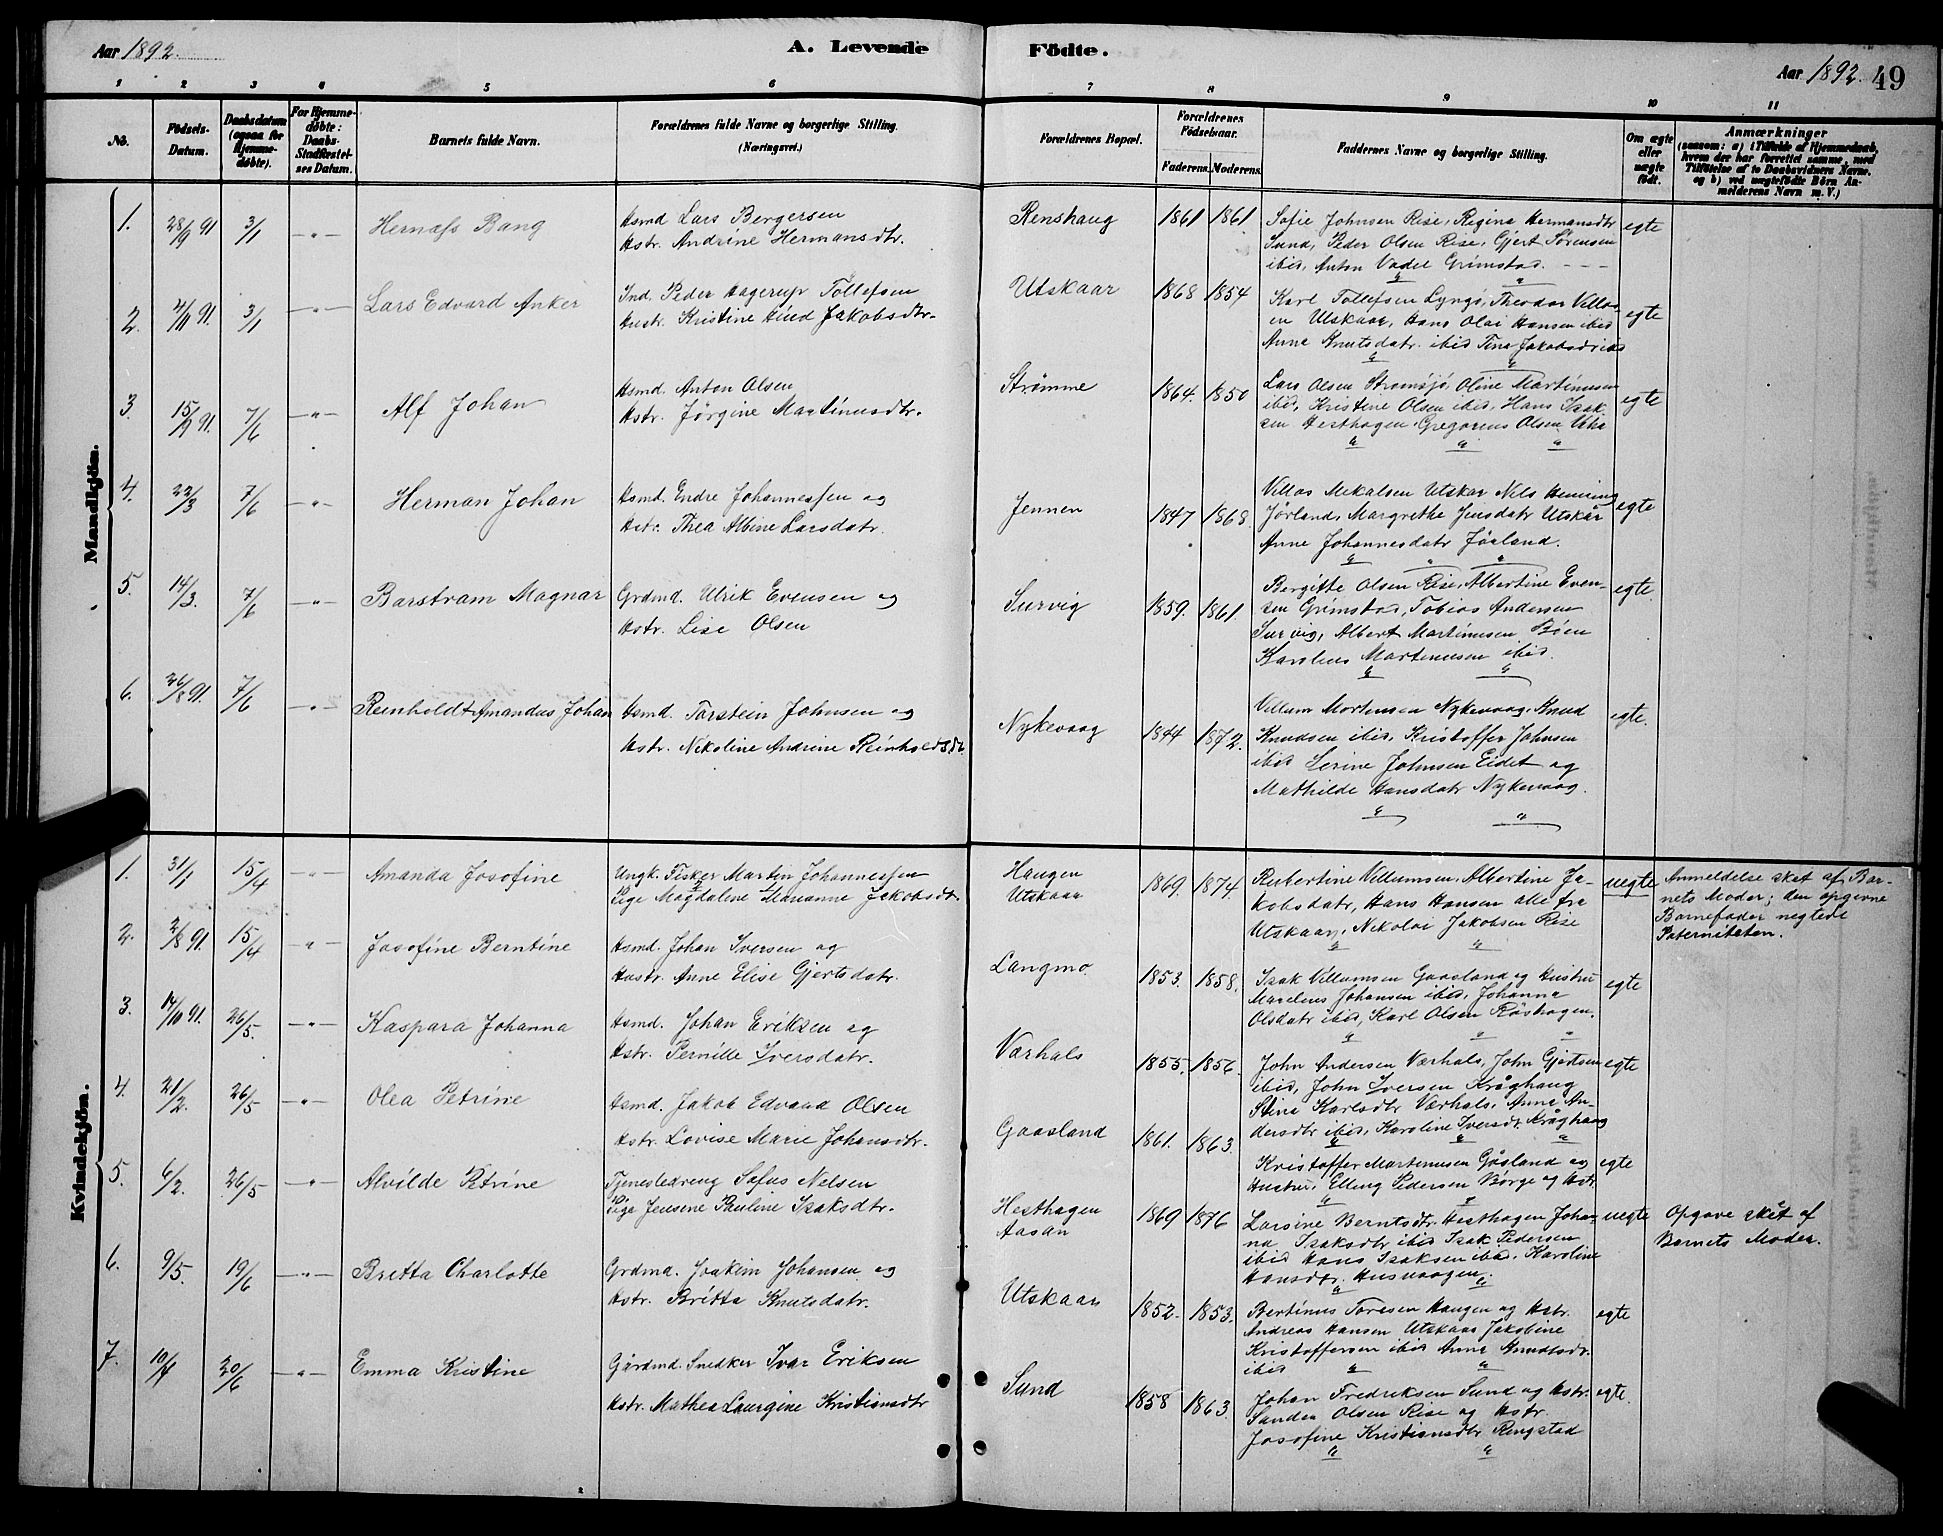 Aar 1892.
A. Levende Födte.
Aar 1892. 49
1 2 3 4 5 6 7 8 9 10 11
No.
Födsels-Datum.
Daabsdatum (ogsaa for Hjemme-døbte).
For Hjemme-døbte: Daabs-Stadfæstel-ses Datum.
Barnets fulde Navn.
Forældrenes fulde Navne og borgerlige Stilling. (Næringsvei.)
Forældrenes Bopæl.
Forældrenes Födselsaar.
Faderens. Moderens.
Faddernes Navne og borgerlige Stilling.
Om ægte eller uægte födt.
Anmærkninger
(saasom: a) i Tilfælde af Hjemmedaab, hvem der har forrettet samme, med Tilföielse af to Daabsvidners Navne, og b) ved uægtefödte Börn An-melderens Navn m. V.)
Mandkjön.
1. 28/9 91 3/1 —"— Hernæss Bang
Gsmd Lars Bergersen
Hstr. Andrine Hermansdtr.
Renshaug 1861 1861.
Sofie Johnsen Rise, Regina Hermansdtr
Sund, Peder Olsen Rise, Gjert Sørensen
ibid, Anton Vadel Grimstad.
egte
2. 4/11 91. 3/1 —"— Lars Edvard Anker
Ind. Peder Hagerup Tollefsen
Hustr. Kristine Hind Jakobsdtr.
Utskaar 1868 1854
Karl Tollefsen Lyngö, Theodor Villas-
en Utskaar, Hans Olai Hansen ibid
Anna Knutsdatr. ibid Tina Jakobsdr ibid
egte
3. 15/9 91. 7/6 —"— Alf Johan
Hsmd. Anton Olsen
Hstr. Jörgine Martinusdtr.
Strømme 1864. 1850
Lars Olsen Stromsjö, Oline Martinusen
ibid, Kristine Olsen ibid, Hans Isak-
sen Hesthagen, Gregorius Olsen
egte
4. 22/3 7/6 —"— Herman Johan
Hsmd. Endre Johannessen og
Hstr. Thea Albine Larsdatr.
Jennen 1847 1868.
Villas Mekalsen Utskar Nils Henning
Jørland, Margrethe Jensdatr Utskår
Anne Johannesdatr Jøsland.
egte
5. 14/3. 7/6 —"— Barstram Magnar
Grdmd. Ulrik Evensen og
Hstr. Lise Olsen
Survig 1859. 1861.
Bergitte Olsen Rise, Albertine Even-
sen Grimstad, Tobias Andersen
Survig, Albert Martinusen Böen
Karolius Martinusen ibid.
egte
6. 26/8 91. 7/6 —"— Reinholdt Amandus Johan
Hsmd. Torstein Johnsen og
Hstr. Nikoline Andrine Reinholdsdr.
Nykevaag 1844 1872.
Villum Mortensen Nykevaag, Knud
Knudsen ibid, Kristoffer Johnsen
ibid Serine Johnsen Eidet og
Mathilde Hansdatr Nykevaag.
egte.
Kvindekjön.
1. 31/1 15/4 —"— Amanda Josofine
Ungk. Fisker Martin Johannessen
Pige Magdalene Marianne Jakobsdtr
Haugen
Utskaar 1869. 1874.
Rubertine Villumsen, Albertine Ja-
kobsdatr, Hans Hansen alle fra
Utskaar, Nikolai Jakobsen Rise
uegte
Anmeldelse sket af Bar-
nets Moder; den opgivne
Barnefader negtede
Paterniteten.
2. 2/8 91. 15/4 " Josofine Berntine
Hsmd. Johan Iversen og
Hustr. Anne Elise Gjertsdatr.
Langmo 1853. 1858.
Isak Villumsen Gaasland og Hustru
Marelius Johansen ibid, Johanna
Olsdatr ibid, Karl Olsen Röshagen.
egte
3. 14/10 91. 26/5. —"— Kaspara Johanna
Hsmd. Johan Eriksen og
Hstr. Pernille Iversdatr.
Værhals 1855. 1856.
John Andersen Værhals, John Gjertsen
ibid, John Iversen Kråghaug
Stina Karlsdtr Værhals, Anna An-
dersdtr ibid, Karoline Iversdr. Kråghaug
egte
4. 21/2. 26/5 —"— Olea Petrine
Hsmd. Jakob Edvard Olsen
Hstr. Lovise Marie Johansdtr.
Gaasland 1861. 1863.
Kristoffer Martinusen Gåsland og
Hustru, Elling Pedersen Börge og Hstr.
egte
5. 6/2. 26/5 —"— Alvilde Petrine
Tjenestedreng Sofus Nelsen
Pige Jensene Pauline Isaksdtr.
Hesthagen
Aasan 1869 1876
Larsine Berntsdtr. Hesthagen Johan-
na Isaksdtr ibid Isak Pedersen
ibid Hans Isaksen ibid. Karoline
Hansdtr. Husvaagen.
uegte
Opgave sket af
Barnets Moder.
6. 9/5. 19/6 —"— Britta Charlotte
Grdmd. Joakim Johansen og
Hstr. Britta Knutsdatr.
Utskaar 1852. 1853.
Bertinus Toresen Haugen og Hstr.
Andreas Hansen Utskaar Jakobine
Kristoffersen ibid Anna Knudtsdr.
ibid
egte
7. 10/4 20/6 —"— Emma Kristine
Gårdmd. Snedker Ivar Eriksen
Hstr. Mathea Laurgine Kristiansdtr
Sund 1858 1863.
Johan Fredriksen Sund og Hstr.
Sander Olsen Rise og Hstr.
Josofine Kristiansdtr Ringstad
egte.
2